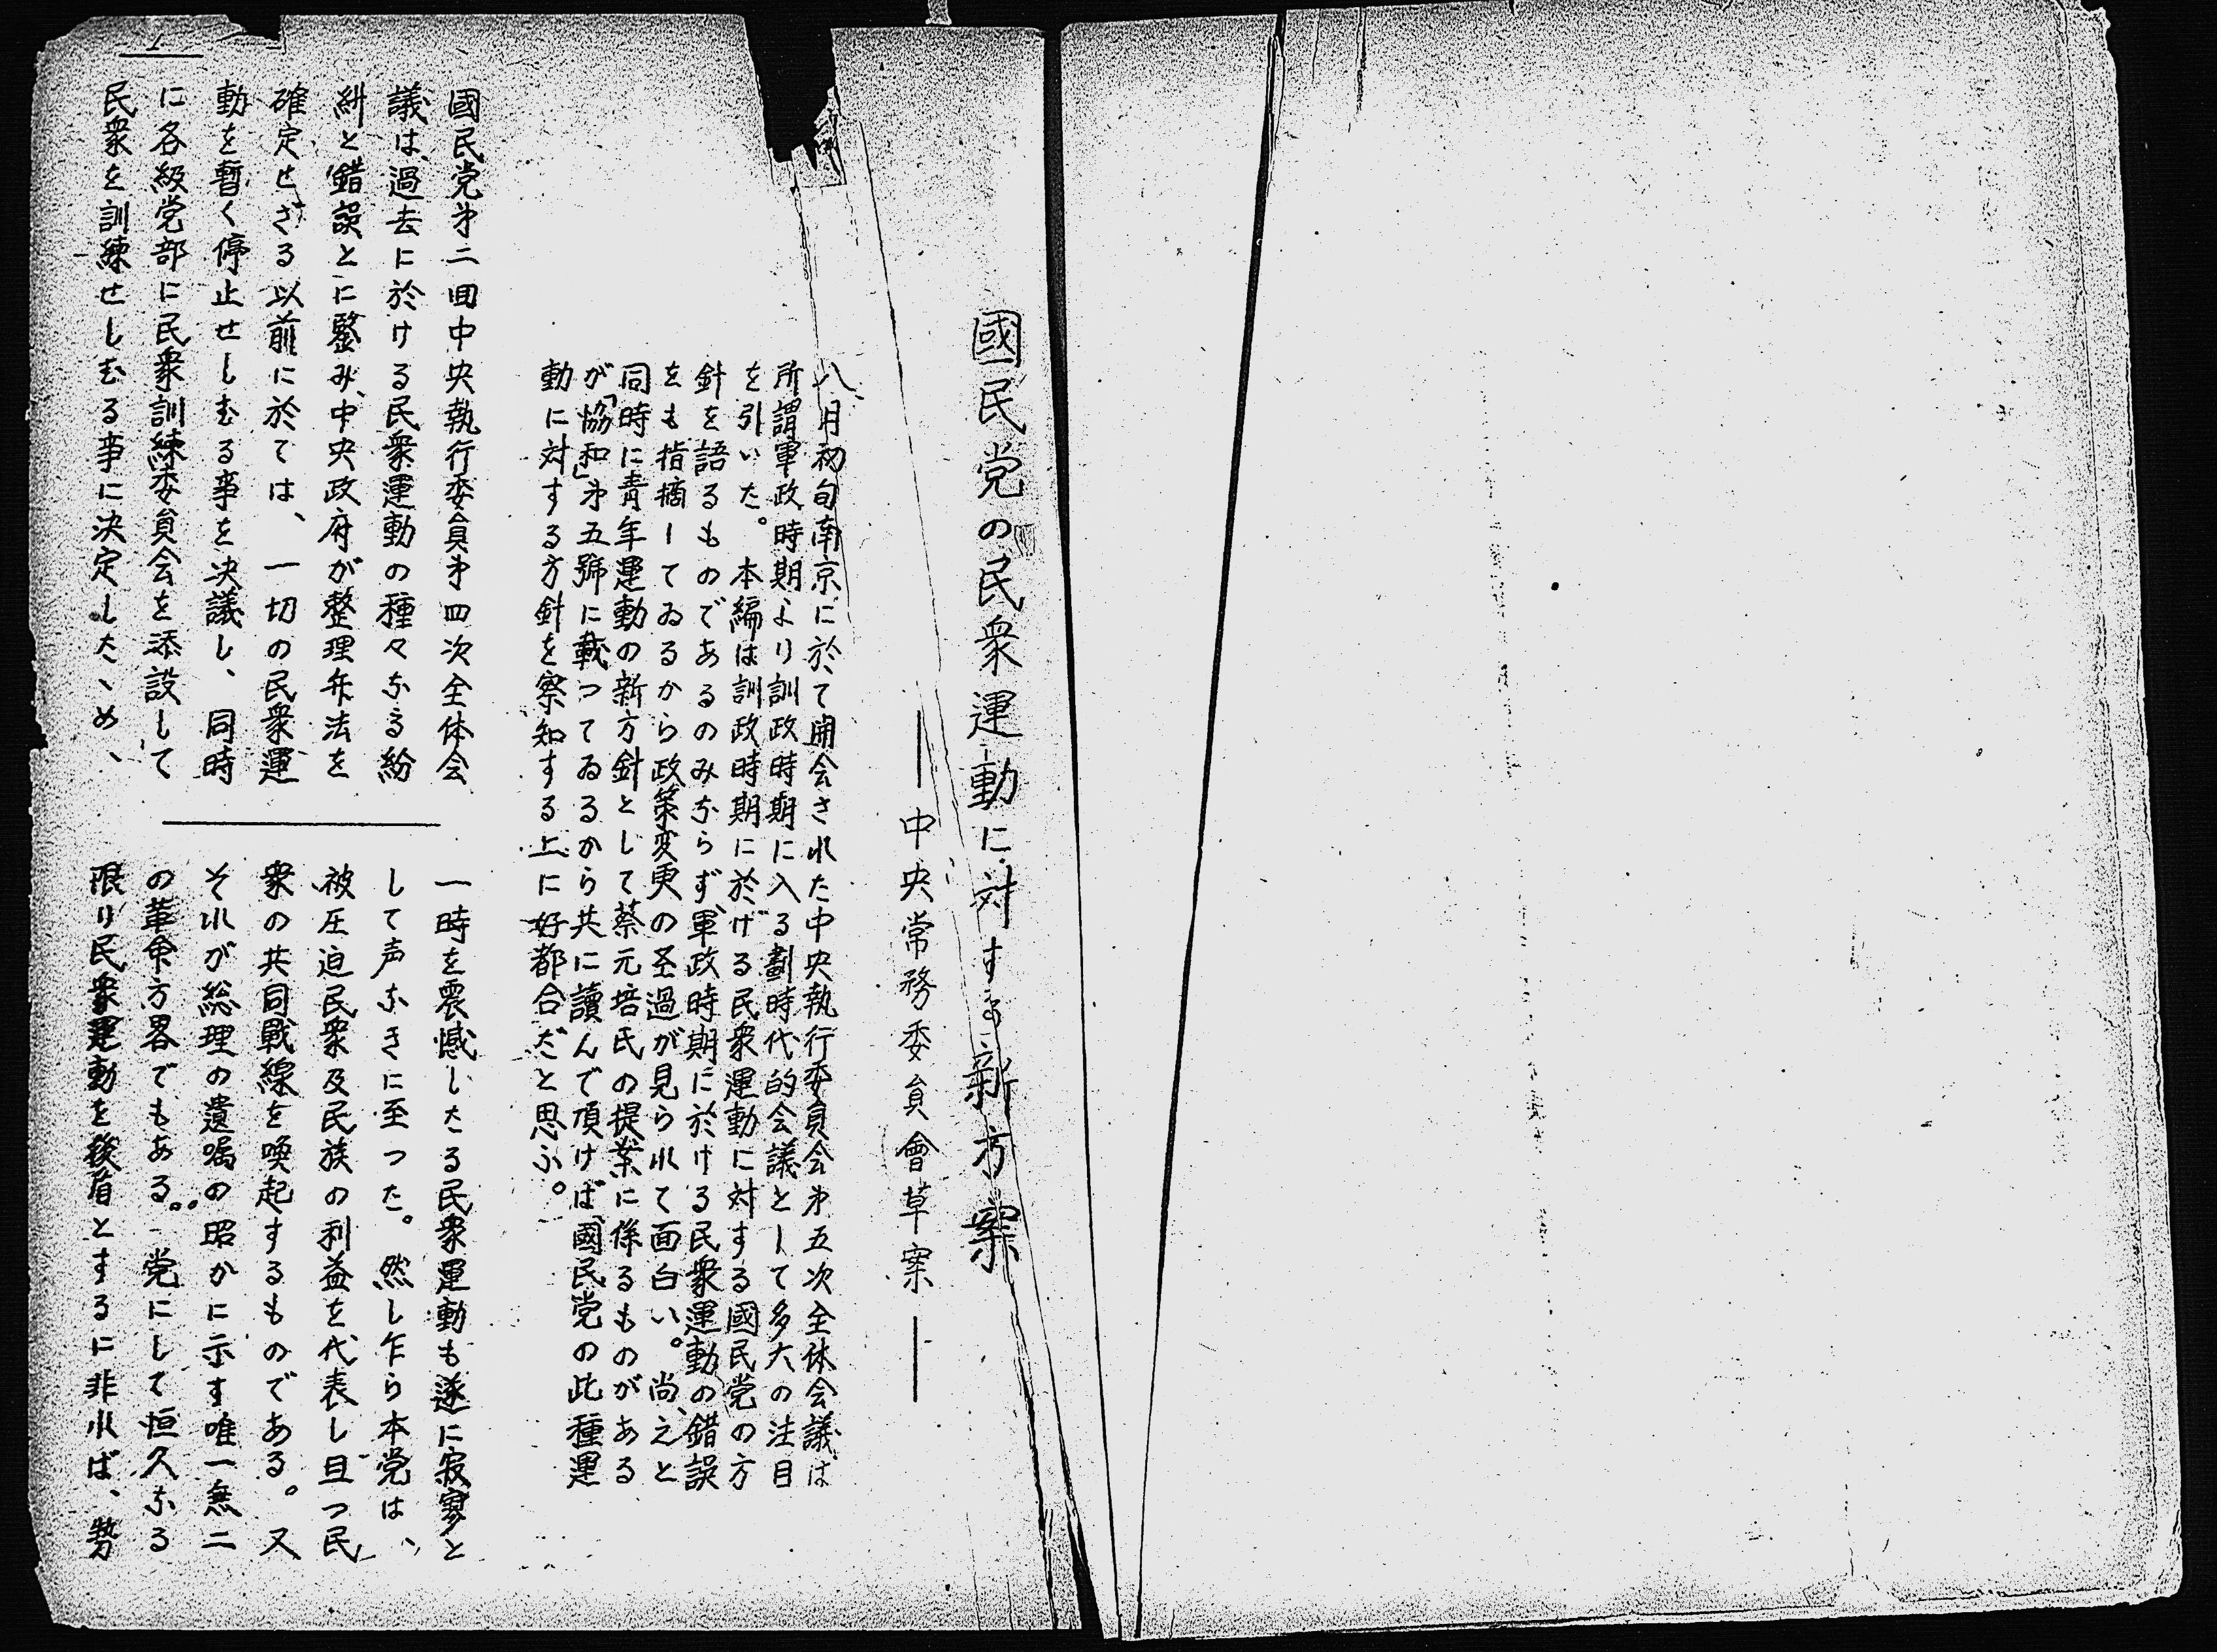 國民党の民衆運動に対する新方案
――中央常務委員會草案――
八月初旬南京に於て開会された中央執行委員会㐧五次全体会議は
所謂軍政時期より訓政時期に入る劃時代的会議として多大の注目
を引いた。本編は訓政時期に於ける民衆運動に対する國民党の方
針を語るものであるのみならず、軍政時期に於ける民衆運動の錯誤
をも指摘してゐるから政策変更の圣過が見られて面白い。尚、之と
同時に青年運動の新方針として蔡元培氏の提案に係るものがある
が「協和」㐧五號に載つてゐるから共に讀んで頂けば「國民党の此種運
動に対する方針を察知する上に好都合だと思ふ。
國民党㐧二囬中央執行委員㐧四次全体会
議は、過去に於ける民衆運動の種々なる紛
糾と錯誤とに鑒み、中央政府が整理弁法を
確定せざる以前に於ては、一切の民衆運
動を暫く停止せしむる事を决議し、同時
に各級党部に民衆訓練委員会を添設して
民衆を訓練せしむる事に决定したゝめ、
一時を震憾したる民衆運動も遂に寂寥と
して声なきに至つた。然し乍ら本党は、
被圧迫民衆及民族の利益を代表し且つ民
衆の共同戦線を喚起するものである。又
それが総理の遺嘱の昭かに示す唯一無二
の革命方畧でもある。党にして恒久なる
限り民衆運動を後盾とするに非れば、勢
1